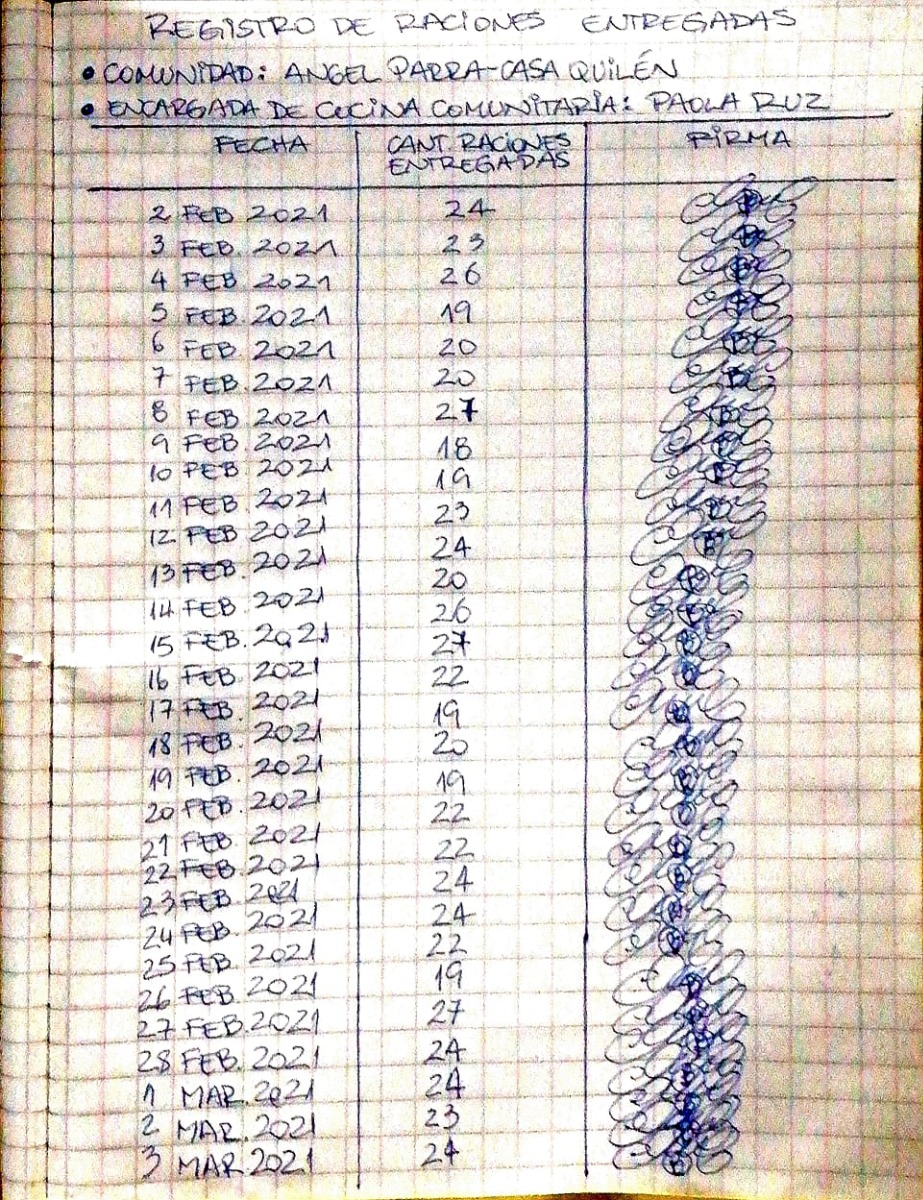 REGISTRO DE RACIONES ENTREGADAS
• COMUNIDAD: ANGEL PARRA-CASA QUILÉN
• ENCARGADA DE COCINA COMUNITARIA: PAOLA RUZ
FECHA CANT. RACIONES ENTREGADAS FIRMA
2 FEB 2021 24
3 FEB. 2021 23
4 FEB. 2021 26
5 FEB. 2021 19
6 FEB. 2021 20
7 FEB. 2021 20
8 FEB 2021 27
9 FEB. 2021 18
10 FEB. 2021 19
11 FEB 2021 23
12 FEB. 2021 24
13 FEB. 2021 20
14 FEB 2021 26
15 FEB. 2021 27
16 FEB. 2021 22
17 FEB. 2021 19
18 FEB. 2021 20
19 FEB. 2021 19
20 FEB. 2021 22
21 FEB 2021 22
22 FEB. 2021
23 FEB. 2021 24
24 FEB. 2021 24
25 FEB 2021 22
26 FEB 2021 19
27 FEB. 2021 27
28 FEB. 2021 24
1 MAR. 2021 24
2 MAR. 2021 23
3 MAR. 2021 24